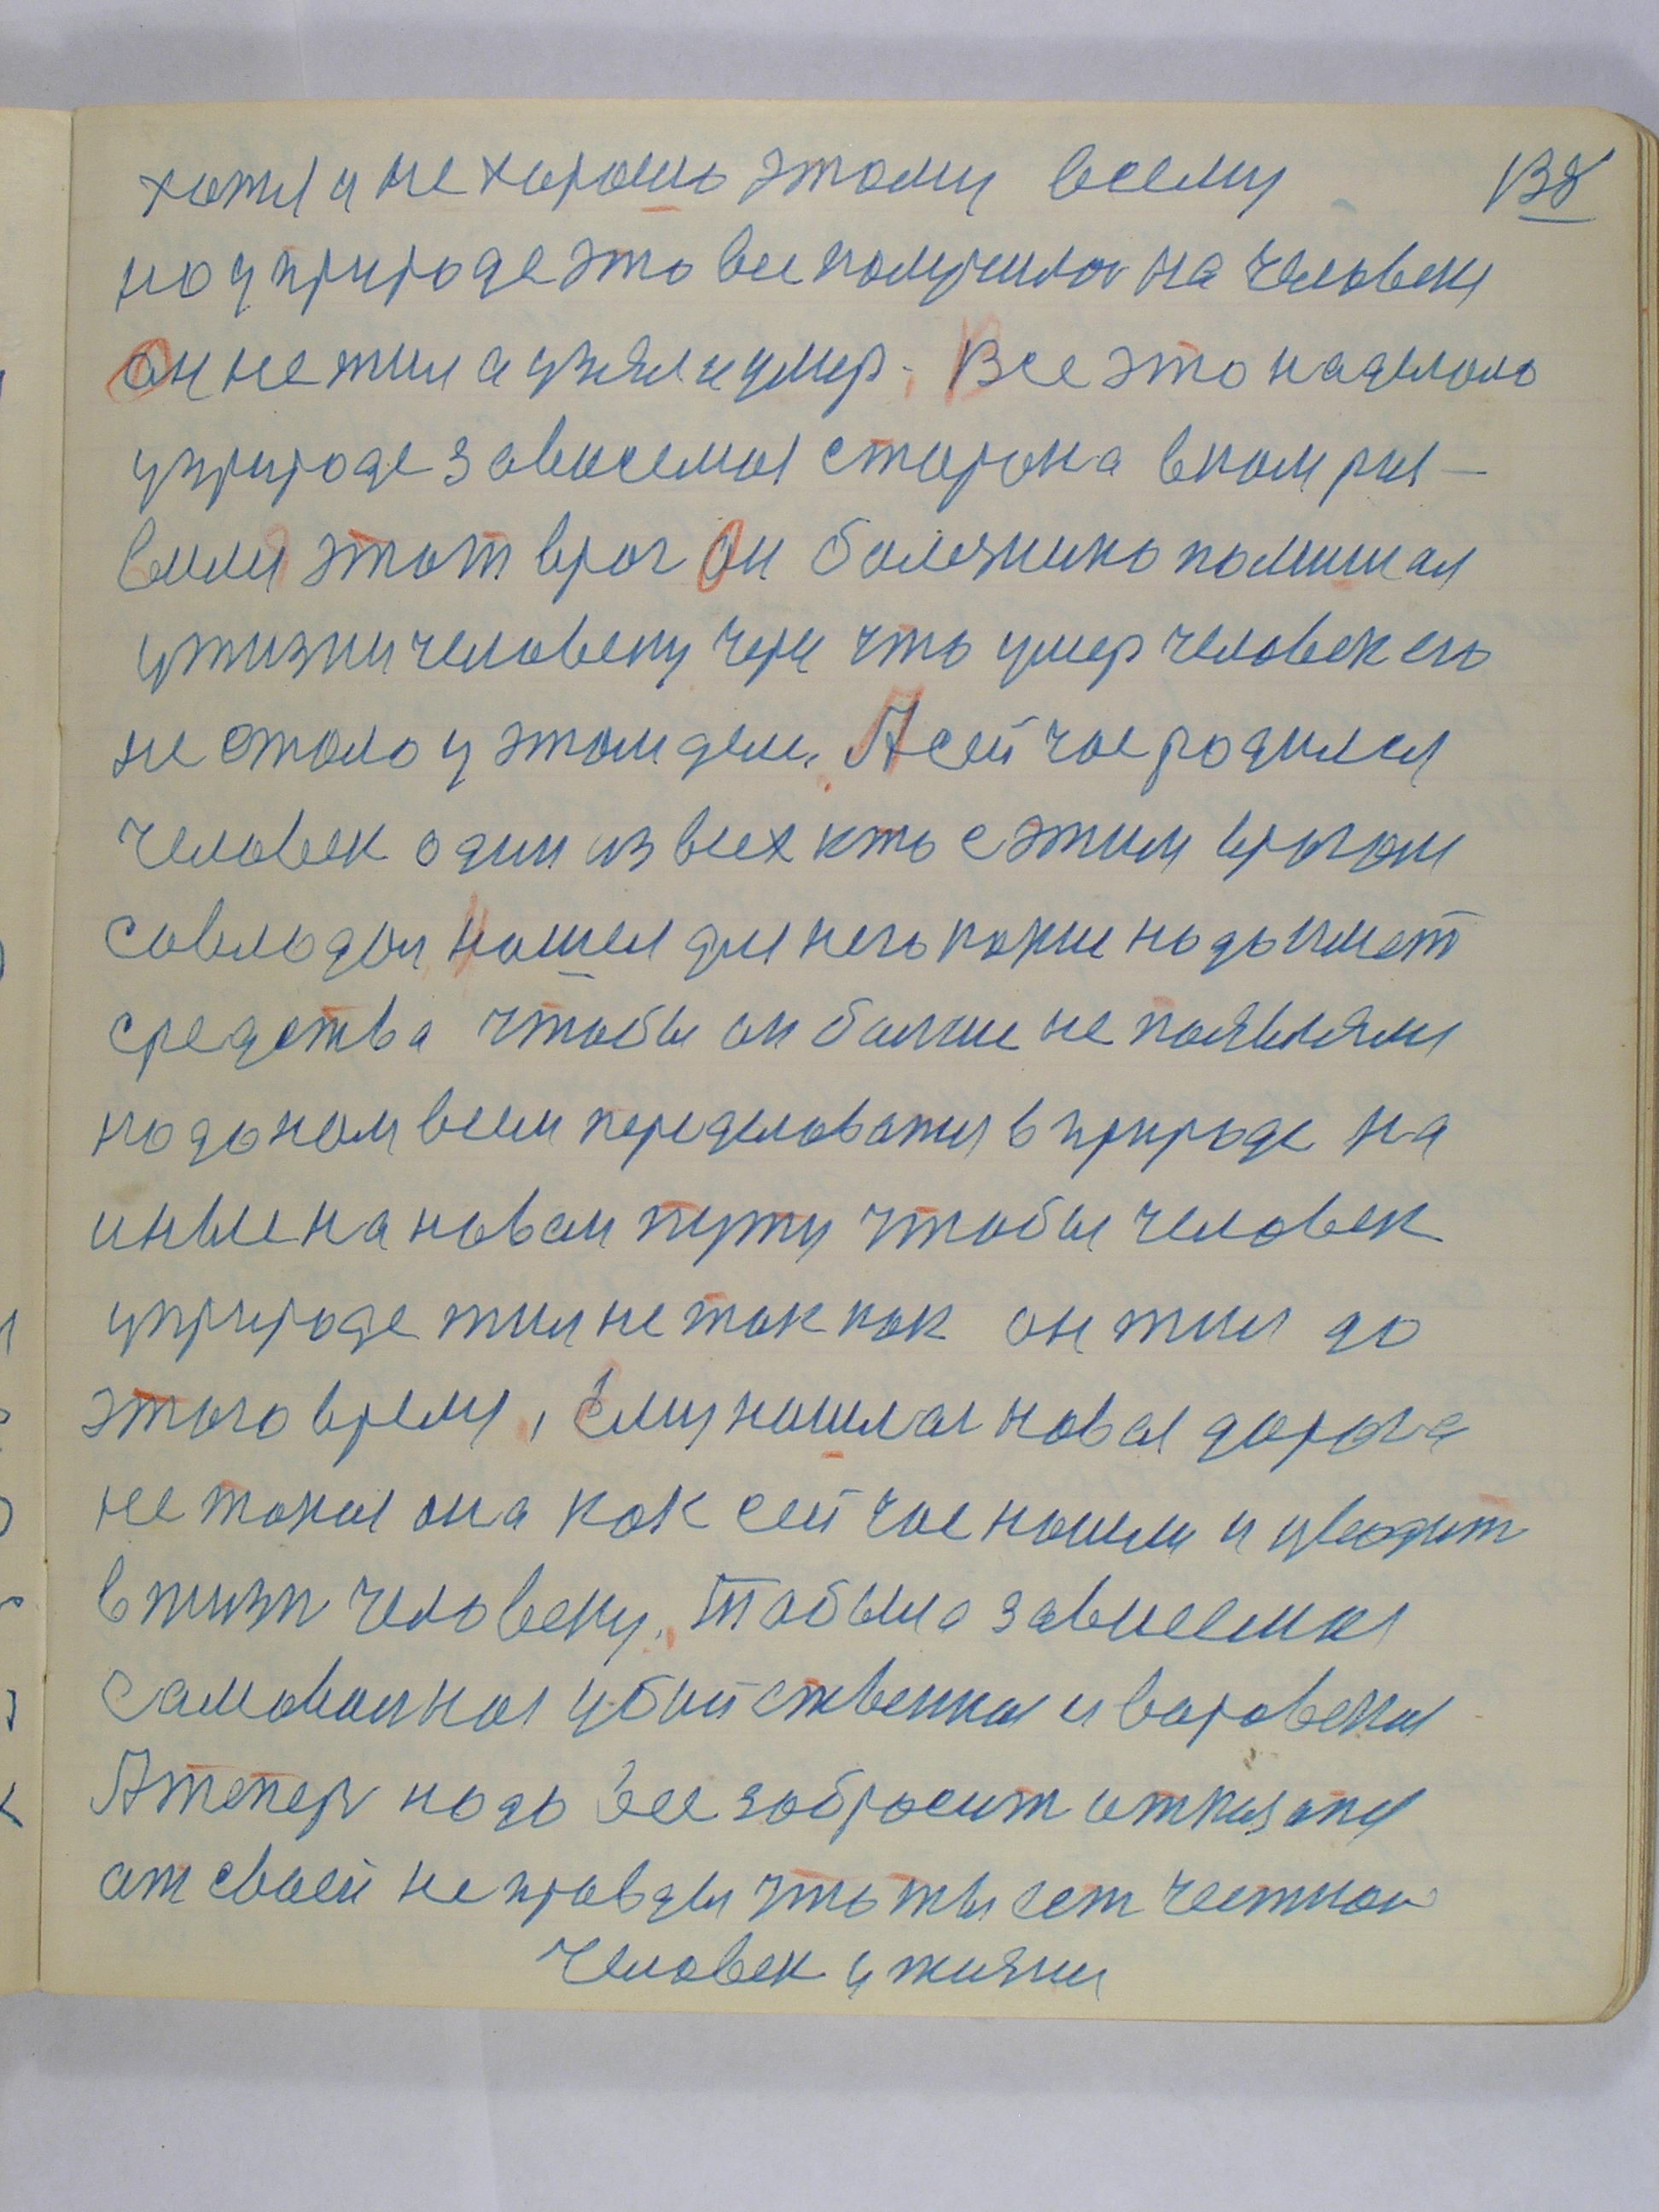 хотя и не хорошо этому всему 138
но у природе это все получилос на человеки
Он не жил а узял и умер. Все это наделала
у природе зависемая сторона в ком роя-
вился этот враг Он болезнию помишал
у жизни человеку через что умер человек его
не стало у этом деле. А сейчас родился
человек один из всех кто с этим врагом
совлодал нашел для него какие надо имет
средства чтобы он болше не появлялся
надо нам всем переделоватся в природе на
иные на новом пути чтобы человек
у природе жил не так как он жил до
этого время, Ему нашлас новая дорога
не такая она как сейчас нашли и уводит
в жизн человеку. Та была зависемая
самовольная убийственная и воровская
А тепер надо ее забросит отказатся
от своей неправды что ты ест честной
человек у жизни